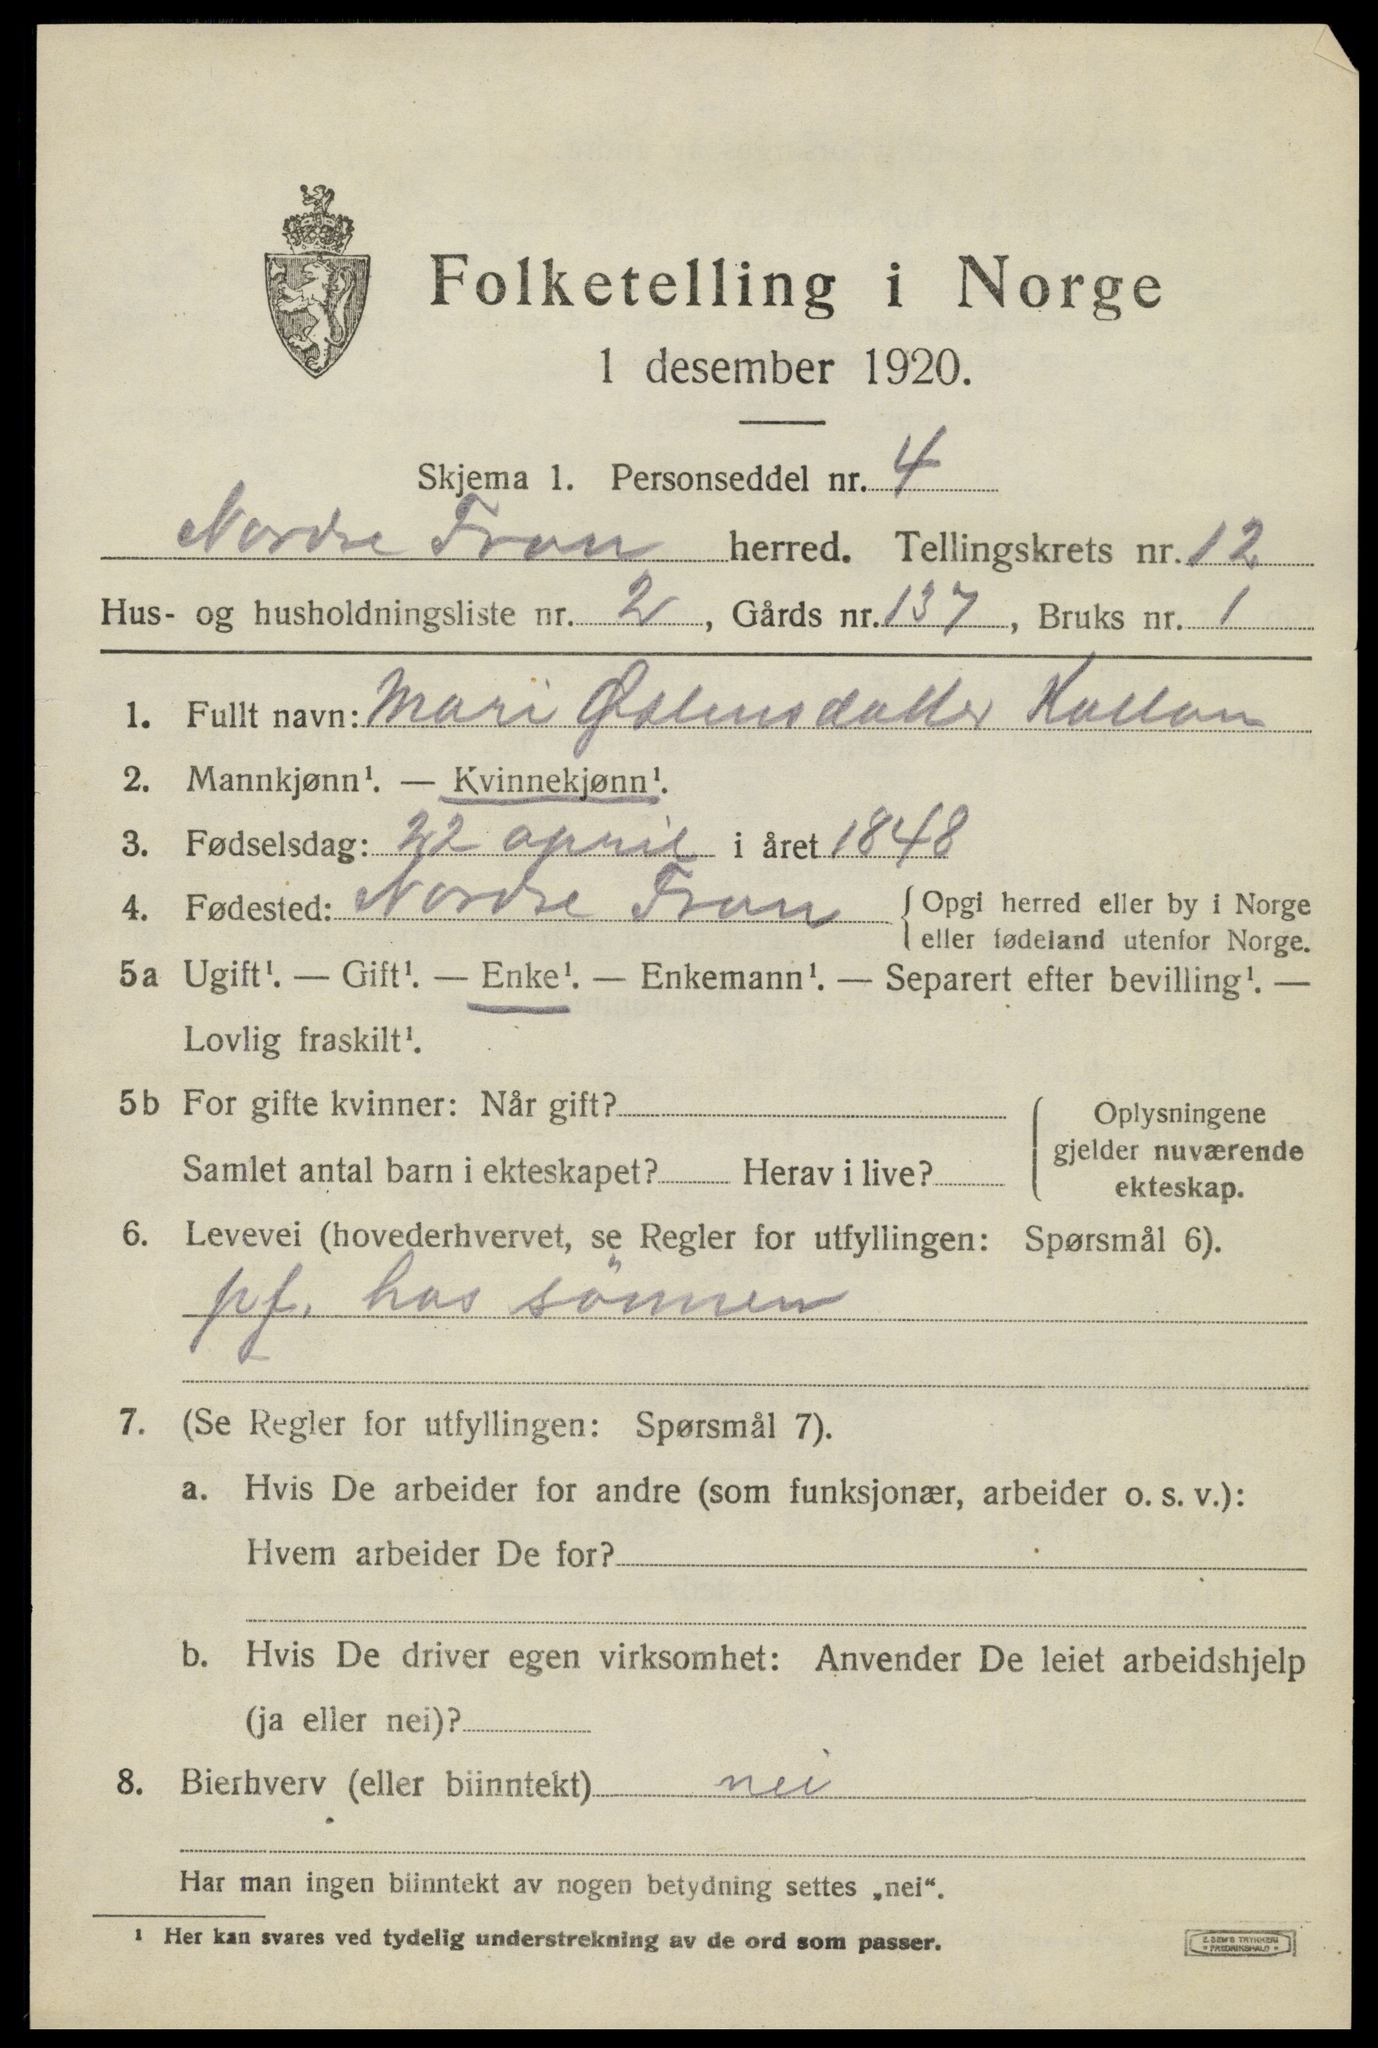 Folketelling i Norge
1 desember 1920.
Skjema 1. Personseddel nr. 4
Nordre Fron herred. Tellingskrets nr. 12
Hus- og husholdningsliste nr. 2, Gårds nr. 137, Bruks nr. 1
1. Fullt navn: Mari Østensdatter
2. Mannkjønn¹. — Kvinnekjønn¹.
3. Fødselsdag: 22 april i året 1848
4. Fødested: Nordre Fron { Opgi herred eller by i Norge
eller fødeland utenfor Norge.
5a Ugift¹. — Gift¹. — Enke¹. — Enkemann¹. — Separert efter bevilling¹. —
Lovlig fraskilt¹.
5b For gifte kvinner: Når gift?
Samlet antal barn i ekteskapet? Herav i live?
{ Oplysningene
gjelder nuværende
ekteskap.
6. Levevei (hovederhvervet, se Regler for utfyllingen: Spørsmål 6).
pf. hos sönnen
7. (Se Regler for utfyllingen: Spørsmål 7).
a. Hvis De arbeider for andre (som funksjonær, arbeider o. s. v.):
Hvem arbeider De for?
b. Hvis De driver egen virksomhet: Anvender De leiet arbeidshjelp
(ja eller nei)?
8. Bierhverv (eller biinntekt) nei
Har man ingen biinntekt av nogen betydning settes „nei“.
¹ Her kan svares ved tydelig understrekning av de ord som passer.
E. SEM'S TRYKKERI
* FREDRIKSHALD *